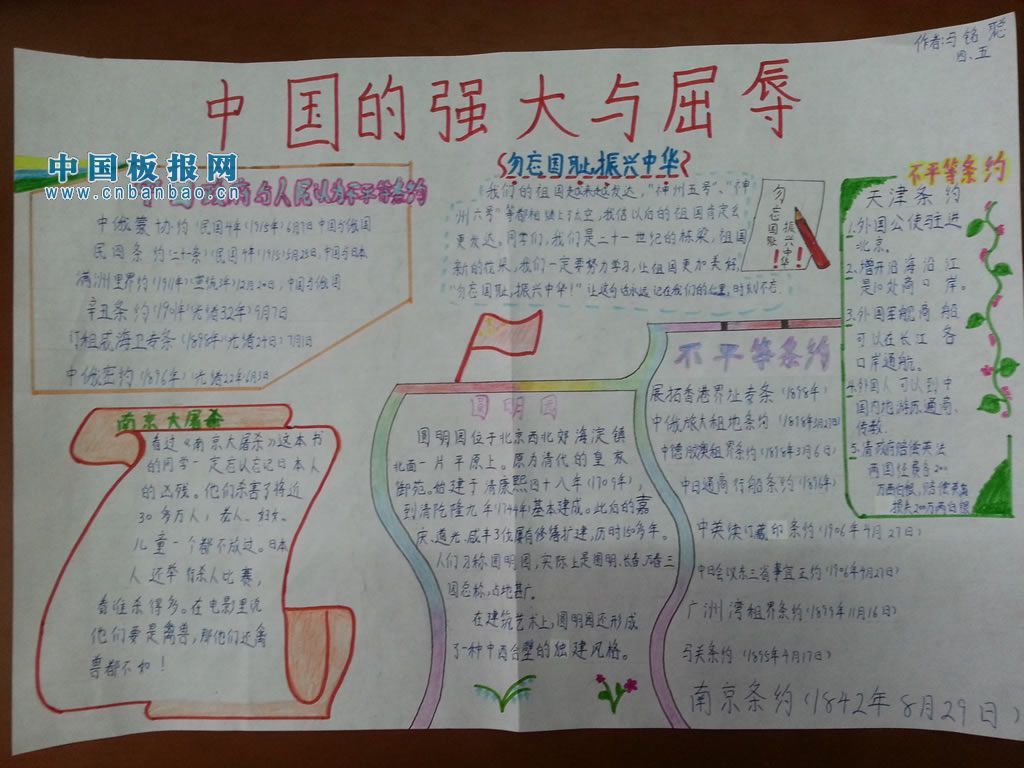 作者:马铭聪
四.五
中国的强大与屈辱
中国板报网
www.cnbanbao.cn
与人民认为不平等条约
中俄蒙协约(民国4年)(1915年)6月7日中国与俄国
民四条约(二十一条)(民国4年)(1915)5月25日,中国与日本
满洲里界约(1911年)(宣统3年)12月20日,中国与俄国
辛丑条约(1901年)(光绪32年)9月7日
订租威海卫专条(1898年)(光绪24日)7月1日
中俄密约(1896年)光绪22年6月3日
勿忘国耻,振兴中华
我们的祖国越来越发达,"神州五号"、"神
州六号"等都相继上了太空,我信以后的祖国肯定会
更发达。同学们,我们是二十一世纪的栋梁,祖国
新的花朵,我们一定要努力学习,让祖国更加美好,
"勿忘国耻,振兴中华!"让这句话永远记在我们的心里,时刻不忘.
勿忘国耻!
振兴中华!
不平等条约
天津条约
1.外国公使驻进
北京.
2.增开沿海沿江
是10处商口岸。
3.外国军舰商船
可以在长江各
口岸通航。
4.外国人可以到中
国内地游历通商、
传教.
5.清政府赔偿英法
两国军费各200
万两白银,赔偿英商
损失200万两白银
南京大屠杀
看过《南京大屠杀》这本书
的同学一定忘认忘记日本人
的凶残。他们杀害了将近
30多万人,老人、妇女、
儿童一个都不放过。日本
人还举有杀人比赛,
看谁杀得多。在电影里说
他们要是禽兽,那他们还禽
兽都不如!
圆明园
圆明园位于北京西北郊海淀镇
北面一片平原上。原为清代的皇家
御苑。始建于清康熙四十八年(1709年),
到清乾隆九年(1744年)基本建成。此后的嘉
庆、道光、咸丰3位屡有修缮扩建,历时150多年。
人们习称圆明园,实际上是圆明、长春、万春三
园总称,占地甚广.
在建筑艺术上,圆明园还形成
了一种中西合璧的独建风格。
不平等条约
展拓香港界址专条(1898年)
中俄旅大租地条约(1898年3月27日)
中德胶澳租界条约(1898年3月6日)
中日通商行船条约(1896年)
中英续订藏印条约(1906年4月27日)
中日会议东三省事宜正约(1906年4月27日)
广州湾租界条约(1899年11月16日)
马关条约(1895年4月17日)
南京条约(1842年8月29日)